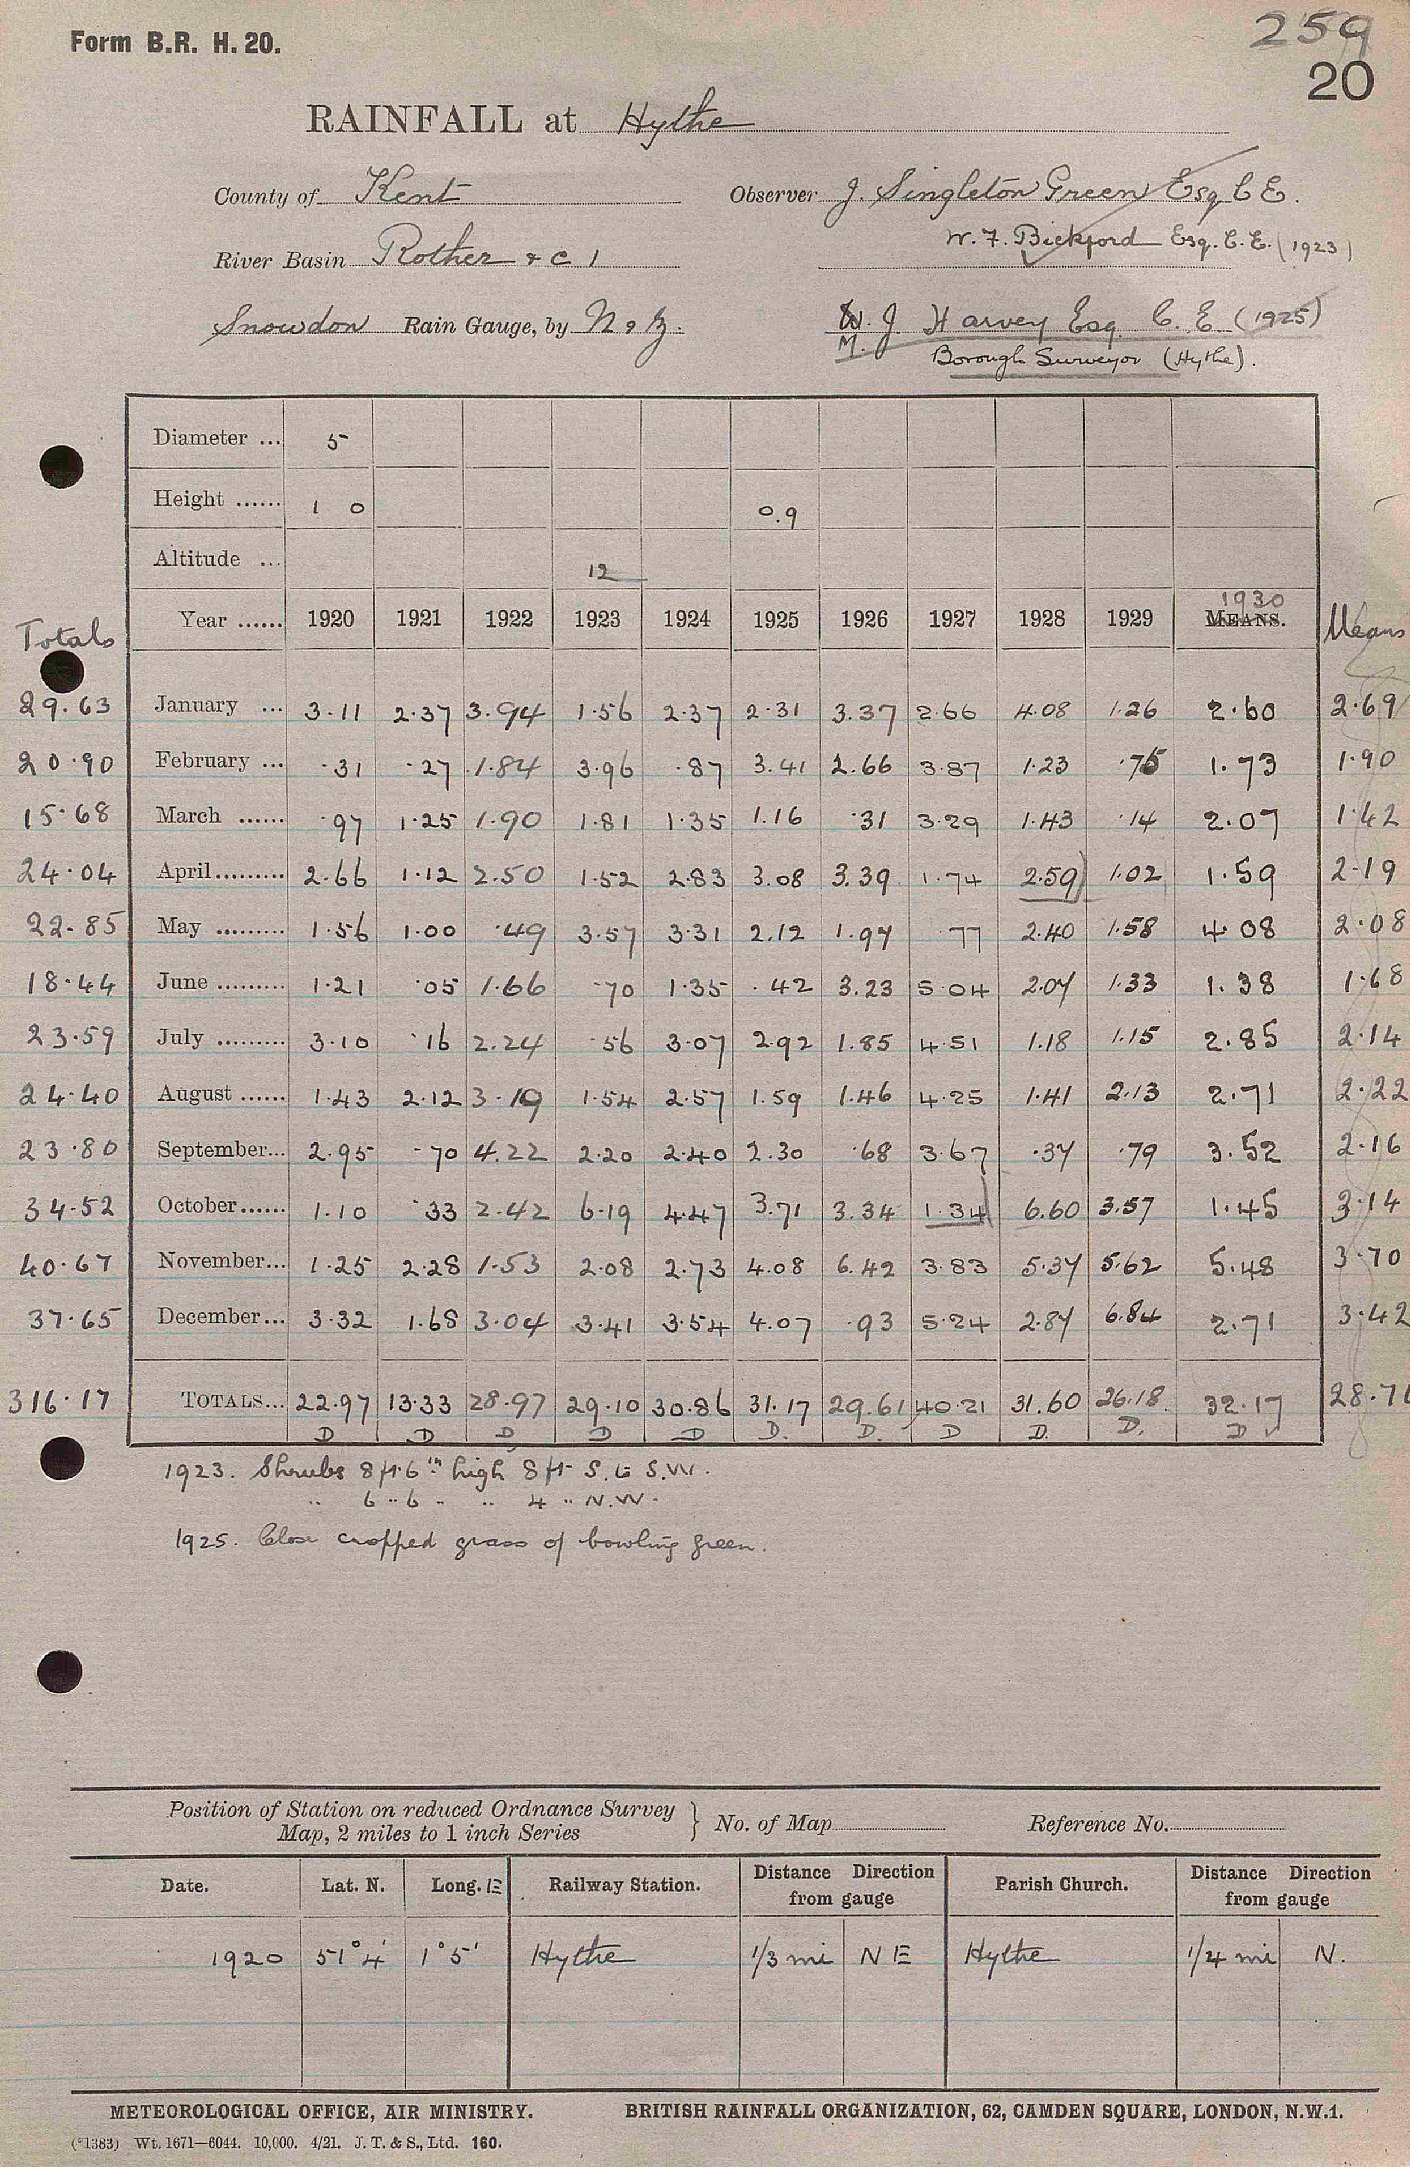 Form B.R. H. 20.
259
20
RAINFALL at Hythe
County of Kent
Observer J. Singleton Green Esq C E.
W. F. Bickford Esq. C. E. (1923)
River Basin Rother & C 1
Snowdon Rain Gauge, by N & Z.
M. J Harvey Esq. C. E. (1925)
Borough Surveyor (Hythe).
Diameter ... 5
Height ...... 1 0 0.9
Altitude ... 12
Totals Year ...... 1920 1921 1922 1923 1924 1925 1926 1927 1928 1929 1930 MEANS. Means
29.63 January ... 3.11 2.37 3.94 1.56 2.37 2.31 3.37 2.66 4.08 1.26 2.60 2.69
20.90 February ... .31 .27 1.84 3.96 .87 3.41 2.66 3.87 1.23 .75 1.73 1.90
15.68 March ...... .97 1.25 1.90 1.81 1.35 1.16 .31 3.29 1.43 .14 2.07 1.42
24.04 April ......... 2.66 1.12 2.50 1.52 2.83 3.08 3.39 1.74 2.59 1.02 1.59 2.19
22.85 May ......... 1.56 1.00 .49 3.57 3.31 2.12 1.97 .77 2.40 1.58 4.08 2.08
18.44 June ......... 1.21 .05 1.66 .70 1.35 .42 3.23 5.04 2.07 1.33 1.38 1.68
23.59 July ......... 3.10 .16 2.24 .56 3.07 2.92 1.85 4.51 1.18 1.15 2.85 2.14
24.40 August ...... 1.43 2.12 3.19 1.54 2.57 1.59 1.46 4.25 1.41 2.13 2.71 2.22
23.80 September... 2.95 .70 4.22 2.20 2.40 2.30 .68 3.67 .37 .79 3.52 2.16
34.52 October ...... 1.10 .33 2.42 6.19 4.47 3.71 3.34 1.34 6.60 3.57 1.45 3.14
40.67 November... 1.25 2.28 1.53 2.08 2.73 4.08 6.42 3.83 5.37 5.62 5.48 3.70
37.65 December... 3.32 1.68 3.04 3.41 3.54 4.07 .93 5.24 2.87 6.84 2.71 3.42
316.17 TOTALS... 22.97 13.33 28.97 29.10 30.86 31.17 29.61 40.21 31.60 26.18 32.17 28.71
D D D D D D. D. D D. D. D
1923. Shrubs 8 ft 6 in high 8 ft S. to S.W.
" 6 " 6 " " 4 " N.W.
1925. Close cropped grass of bowling green.
Position of Station on reduced Ordnance Survey
Map, 2 miles to 1 inch Series } No. of Map Reference No.
Date. Lat. N. Long. E Railway Station. Distance Direction from gauge Parish Church. Distance Direction from gauge
1920 51° 4' 1° 5' Hythe 1/3 mi N E Hythe 1/4 mi N.
METEOROLOGICAL OFFICE, AIR MINISTRY. BRITISH RAINFALL ORGANIZATION, 62, CAMDEN SQUARE, LONDON, N.W.1.
(*1383) Wt. 1671—6044. 10,000. 4/21. J. T. & S., Ltd. 160.